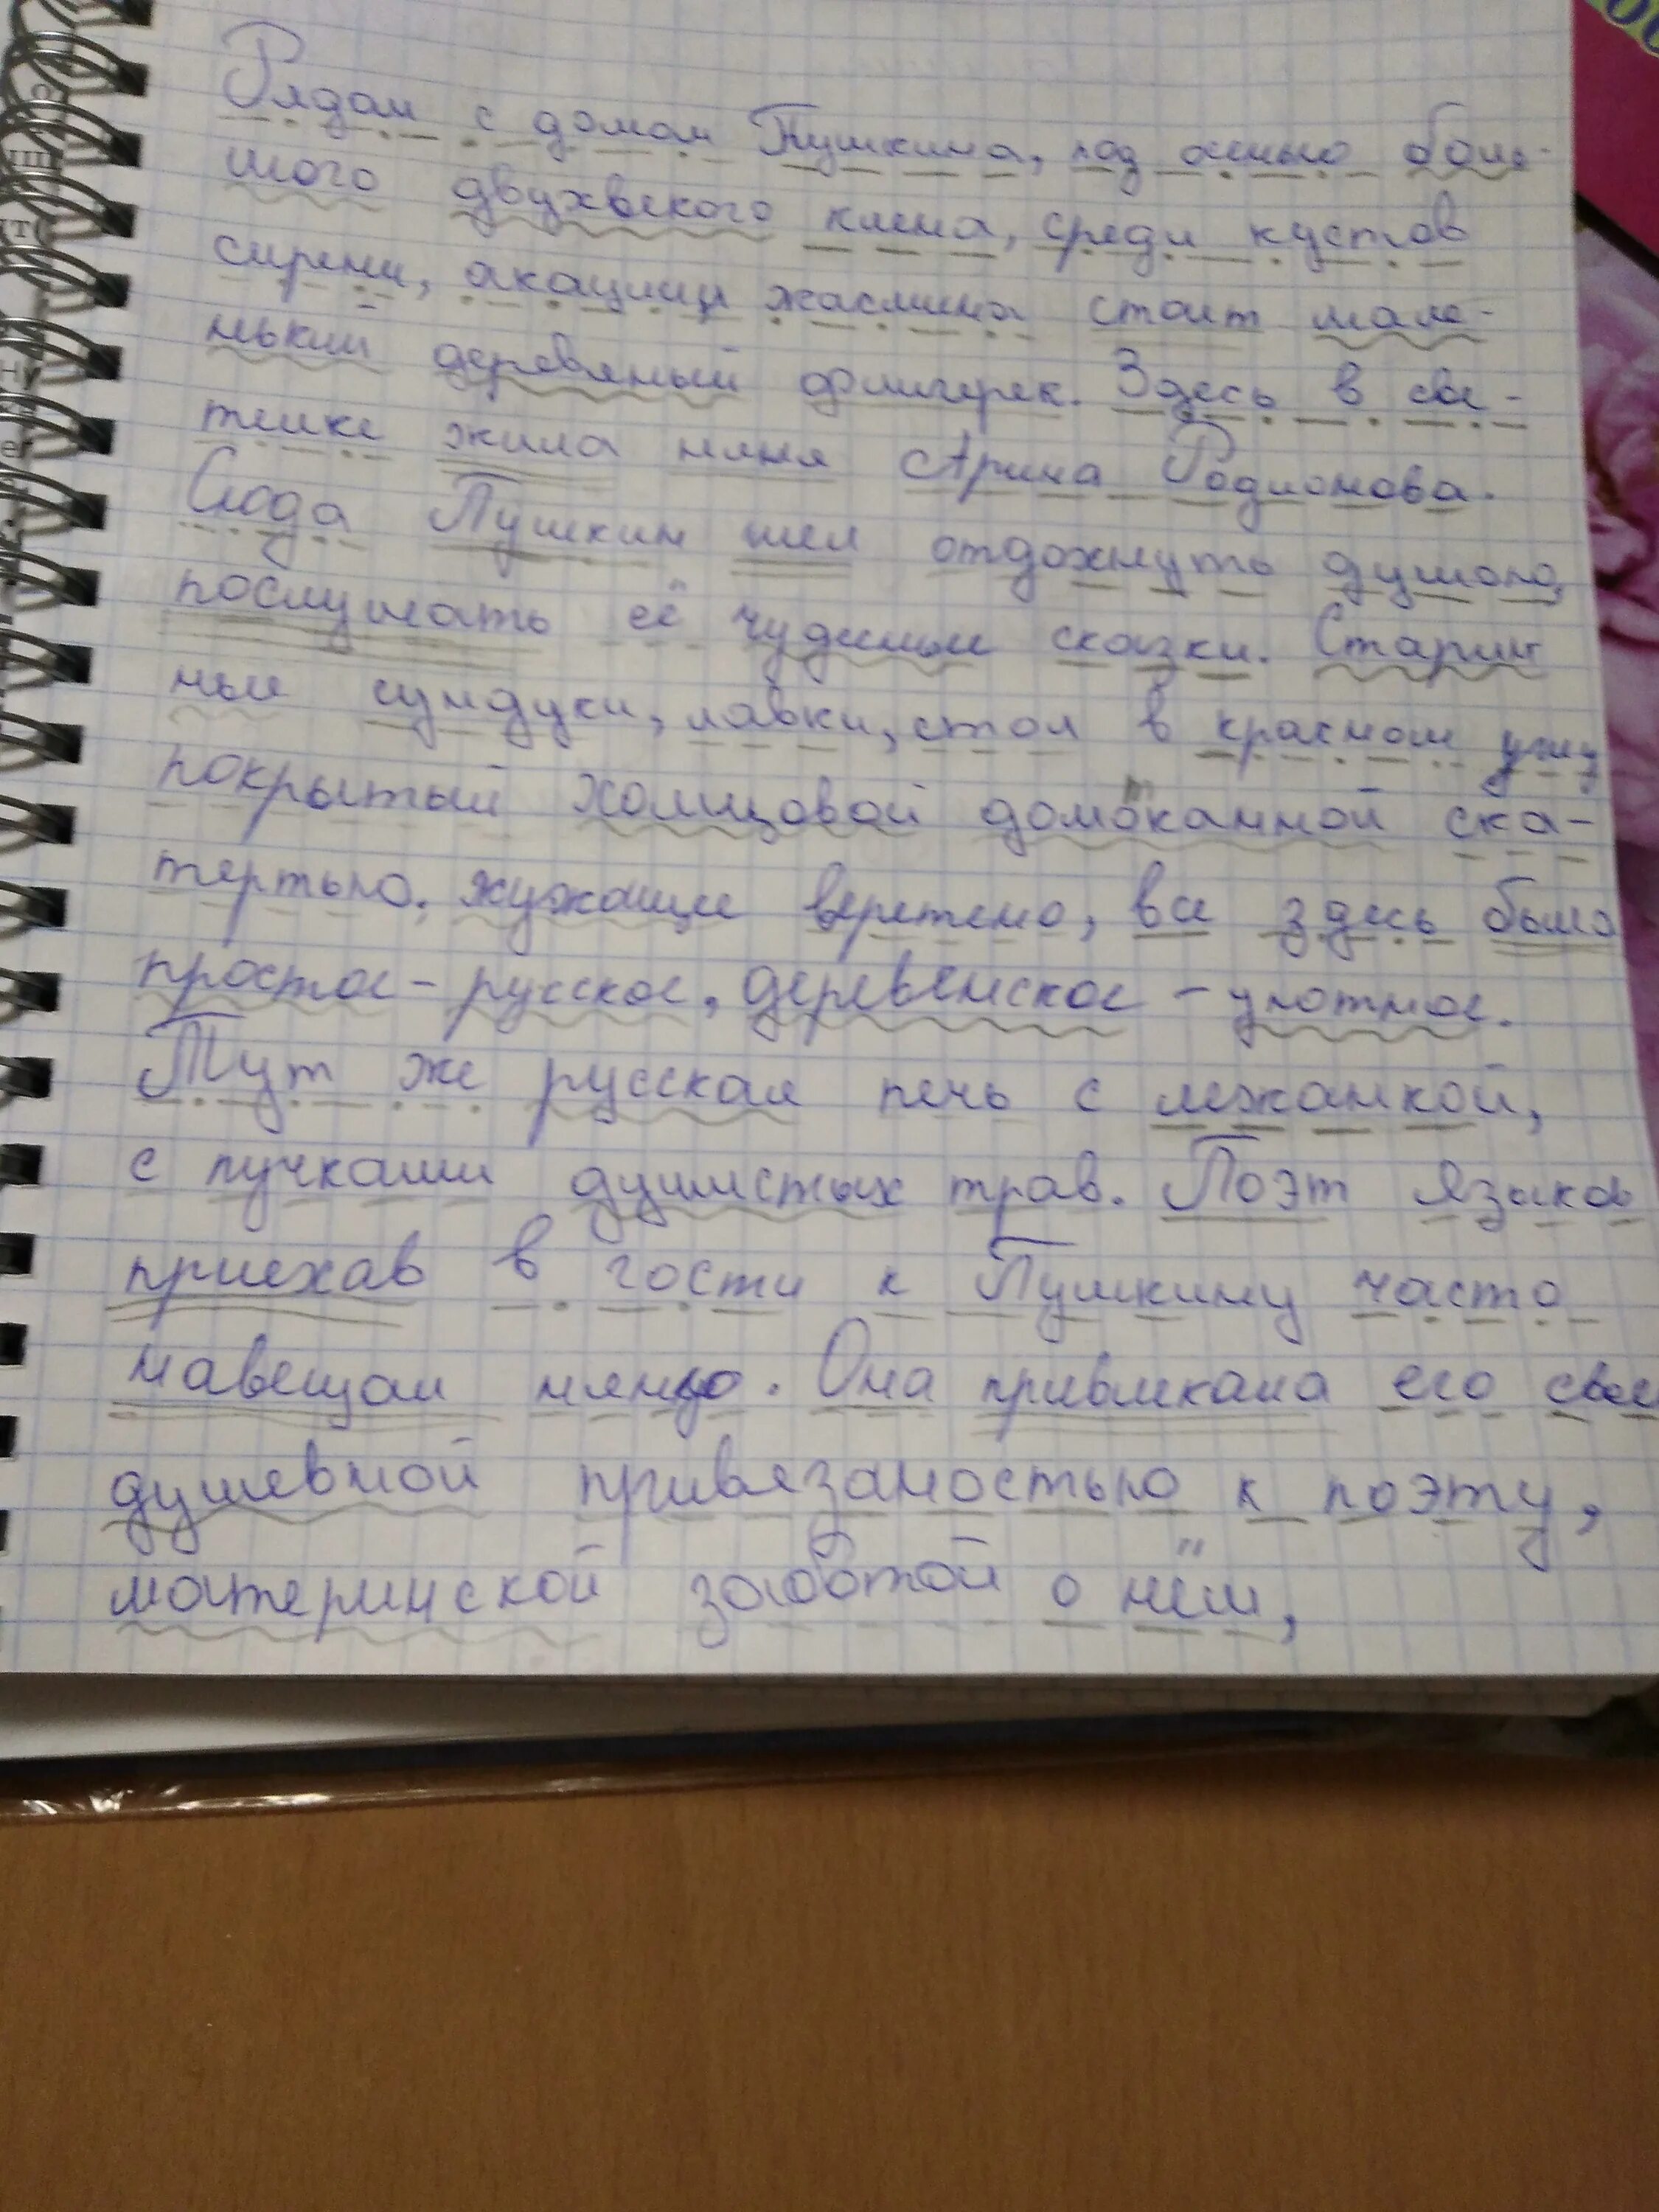 Рядом с домом Пушкина, под осенью боль-
шого двухвекого клена, среди кустов
сирени, акации жасмина стоит мале-
нький деревяный флигерек. Здесь в све-
телке жила няня Арина Родионова.
Сюда Пушкин шел отдохнуть душою,
послушать её чудесные сказки. Старин
ные сундуки, лавки, стол в красном углу
покрытый холщовой домотканной ска-
тертью, жужащие веретено, все здесь было
простое-русское, деревенское-уютное.
Тут же русская печь с лежанкой,
с пучками душистых трав. Поэт Языков
приехав в гости к Пушкину часто
навещал няню. Она привлекала его своей
душевной привязаностью к поэту,
материнской заботой о нём,